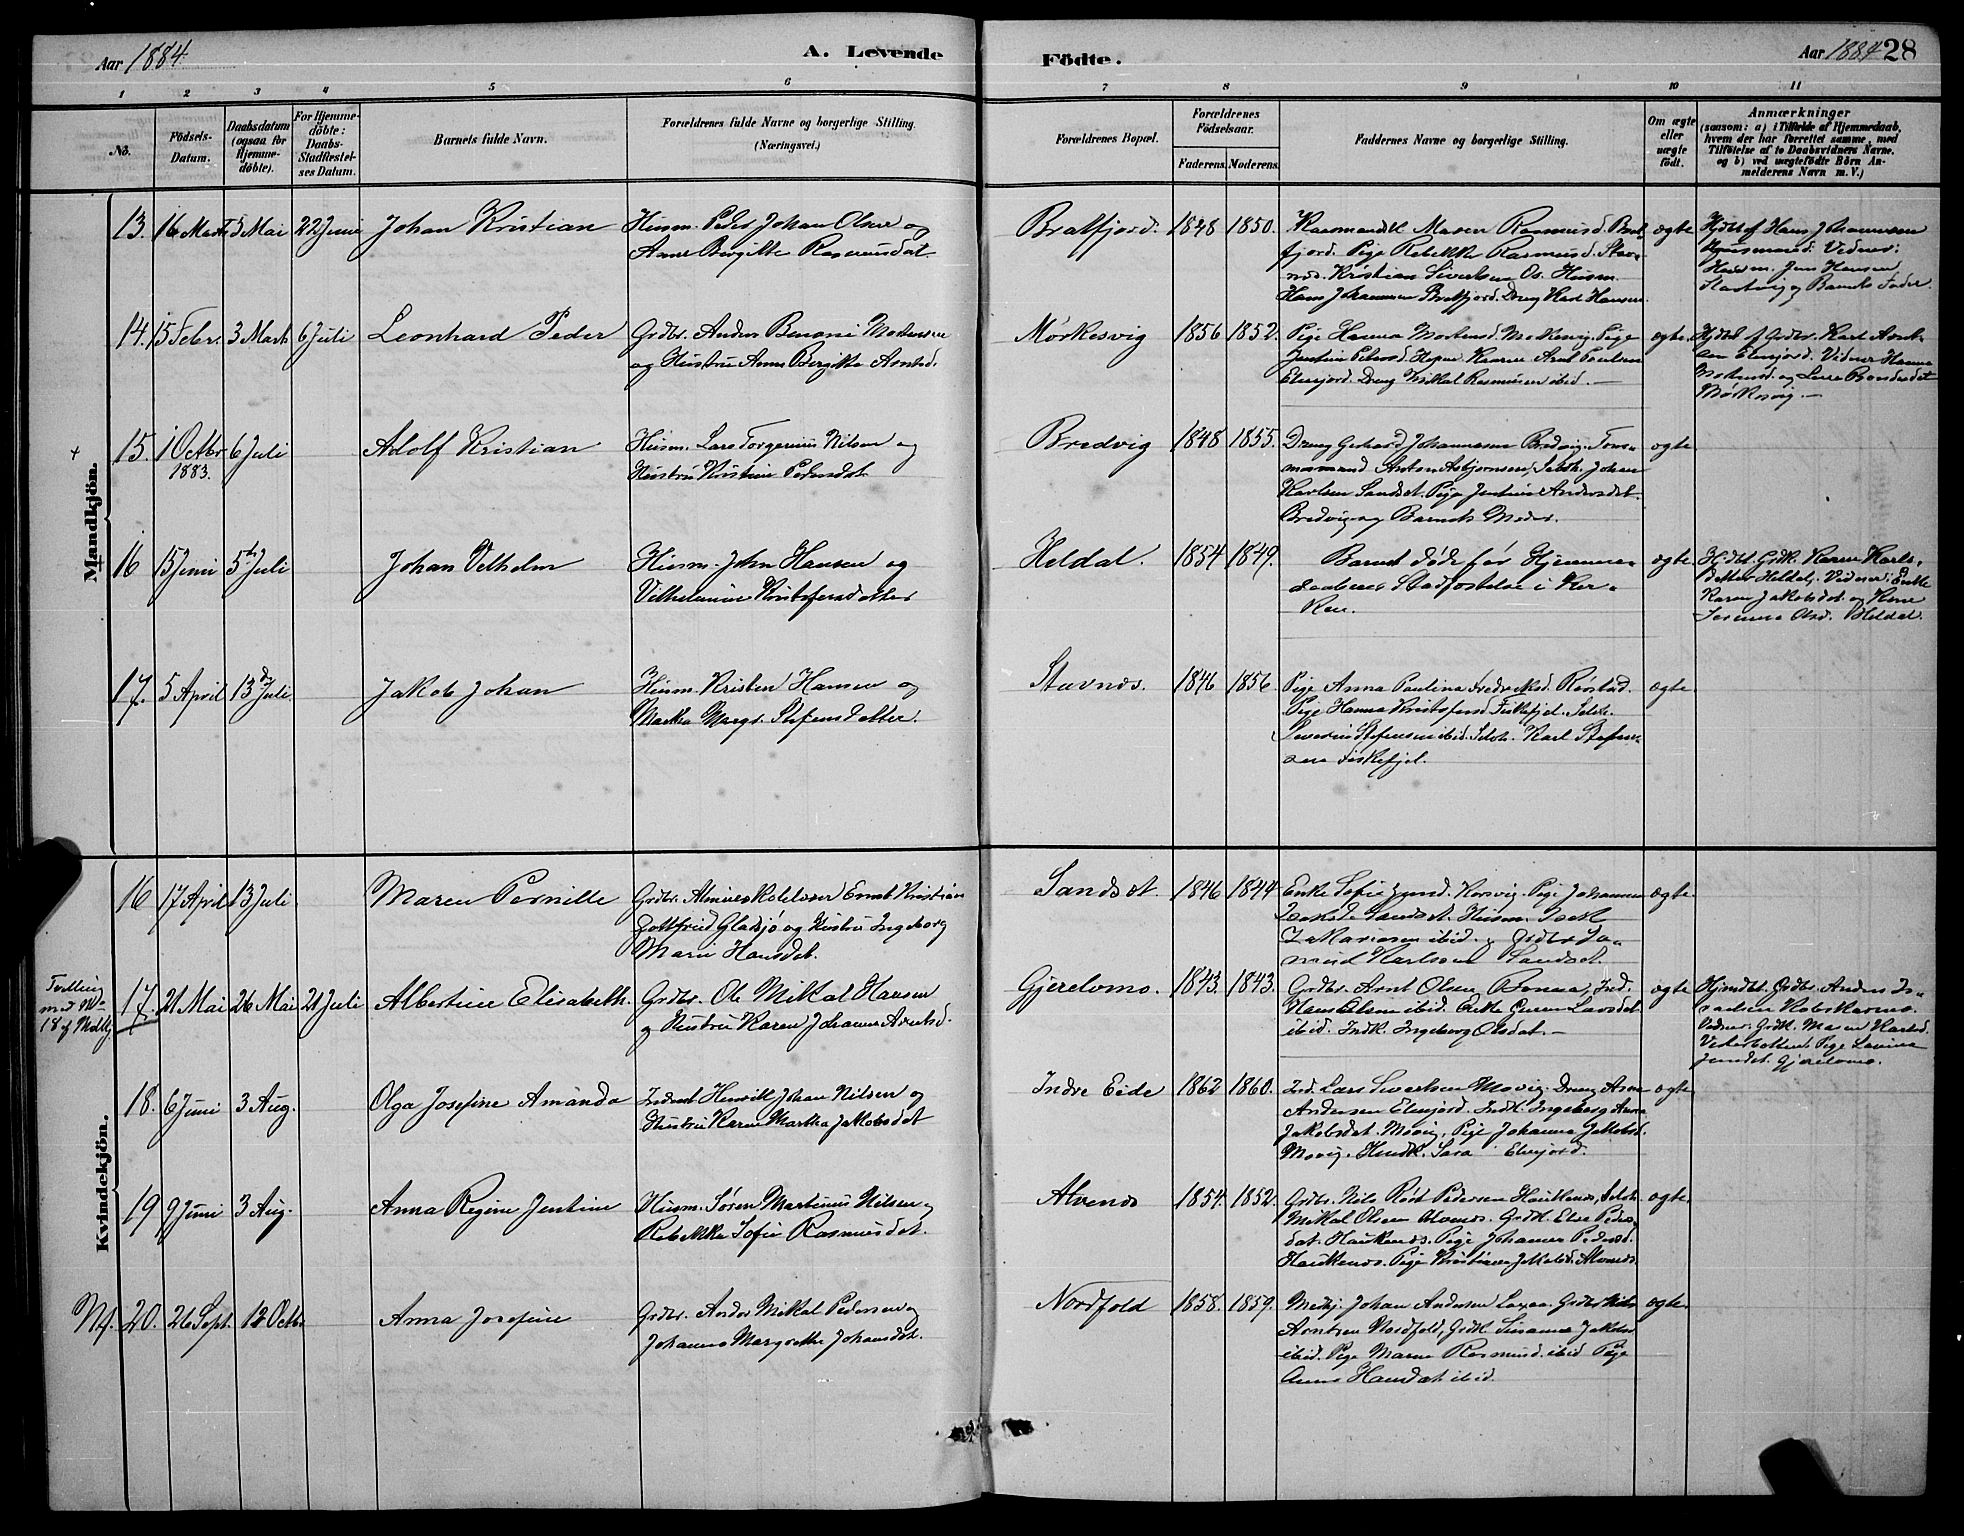 Aar 1884
A. Levende
Födte.
Aar 1884 28
1 2 3 4 5 6 7 8 9 10 11
No.
Födsels-
Datum.
Daabsdatum
(ogsaa for
Hjemme-
döbte).
For Hjemme-
döbte:
Daabs-
Stadfæstel-
ses Datum.
Barnets fulde Navn.
Forældrenes fulde Navne og borgerlige Stilling.
(Næringsvei.)
Forældrenes Bopæl.
Forældrenes
Födselsaar.
Faderens. Moderens.
Faddernes Navne og borgerlige Stilling.
Om ægte
eller
uægte
födt.
Anmærkninger
(saasom: a) i Tilfælde af Hjemmedaab,
hvem der har forrettet samme, med
Tilföielse af to Daabsvidners Navne.
og b) ved uægtefödte Börn An-
melderens Navn m. V.)
Mandkjön.
13. 16 Marts 5 Mai 22 Juni Johan Kristian
Husm. Peder Johan Olsen og
Anne Bergitte Rasmusdat.
Bratfjord. 1848 1850.
Maren Rasmusd. Brat-
fjord. Pige Rebekka Rasmusd. Stav-
nes. Kristian Sivertsen Os. Husm.
Hans Johannesen Bratfjord. Dreng Karl Hansen
ægte
Hjdbt af Hans Johannesen
Vidner:
Husm. Jens Hansen
og Barnets Fader.
14. 15 Febr. 3 Marts 6 Juli Leonhard Peder
Grdbr. Anders Benoni Mortensen
og Hustru Anne Bergitte Arntsd.
Mørkesvig 1856 1852.
Pige Hanna Mortensd. Mørkesvig. Pige
Justine Petersd. Arnt Paulsen
Elvefjord. Dreng Mikal Rasmussen ibid. —
ægte
Hjdbt af Grdbr. Karl Arnt-
sen Elvefjord. Vidner Hanna
Mortensd. og
Mørkesvig —
+
15. 1 Octbr 6 Juli Adolf Kristian
1883.
Husm. Lars Torgerius Nilsen og
Hustru Kristine Pedersdat.
Bredvig 1848 1855.
Dreng Gerhard Johannesen Bredvig. Tom-
mermand Anton Asbjørnsen, Selvh. Johan
Karlsen Sandset. Pige Justine Andersdat.
Bredvig og Barnets Moder.
ægte
16 15 Juni 5 Juli Johan Velhelm
Husm. John Hansen og
Vilhelmine Kristofersdatter
Heldal. 1854 1849.
Barnet døde før Hjemme-
daabens Stadfæstelse i Kir-
ken.
ægte
Hjdbt. Grdk. Karen Karls-
datter Heldal. Vidner: Enke
Karen Jakobsdat. og Kone
Olsd. Heldal.
17. 5 April 13 Juli Jakob Johan
Husm. Kristen Hansen og
Martha Margr. Stefensdatter.
Stavnes. 1846 1856
Pige Anna Paulina Fredriksd. Røstad.
Pige Hanna Kristofersd Fiskefjel. Selvh.
Severin Stefensen ibid. Selvh. Karl Stefen-
sen Fiskefjel.
ægte
Kvindekjön.
16 17 April 13 Juli Maren Pernille
Grdbr. Ernst Kristian
Gottfried Gladsjø og Hustru Ingeborg
Marie Hansdat.
Sandset 1846 1844
Enke Sofie Korsvig. Pige Johanna
Sandset. Husm. Isak
Zakariasen ibid. Grdbr.
Karlsen Sandset.
ægte
Tvilling
med No
18 af Mdkj.
17. 21 Mai 26 Mai 21 Juli Albertine Elisabeth.
Grdbr. Ole Mikal Hansen
og Hustru Karen Johanna Arntsd.
Gjerelvmo. 1843. 1843.
Grdbr. Arnt Olsen Ind.
Hans Olsen ibid. Enke Larsdat
ibid. Indk. Ingeborg Olsdat. —
ægte
Hjmdbt. Grdbr. Anders Is-
aksen
Vidner: Grdk. Maren
Pige
Gjerelvmo.
18. 6 Juni 3 Aug. Olga Josefine Amanda
Inderst Henrik Johan Nilsen og
Hustru Karen Martha Jakobsdat
Indre Eide 1862 1860.
Ind. Lars Sivertsen Movig. Dreng
Andersen Elvefjord. Indk. Ingeborg Anna
Jakobsdat. Movig. Pige Johanna Jakobsd.
Movig. Sara Elvefjord.
ægte
19 9 Juni 3 Aug. Anna Regine Justine
Husm. Søren Martinus Nilsen og
Rebekka Sofie Rasmusdat.
Alvenes 1854. 1852.
Grdbr. Nils Røst Pedersen Haukenes, Selvh.
Mikal Olsen Alvenes. Grdk. Else Peders-
dat. Haukenes. Pige Johanna Pedersd.
Haukenes. Pige Kristiane Jakobsd. Alvenes.
ægte
20. 26 Sept. 12 Octbr Anna Josefine
Grdbr. Andor Mikal Pedersen og
Johanna Margrethe Johansdat.
Nordfold 1858. 1859.
Johan Andersen Laxaa. Grdbr. Nils
Arntsen Nordfold, Grdk. Susanna Jakobsd
ibid. Pige Maren Rasmusd. ibid Pige
Anna Hansdat ibid.
ægte.